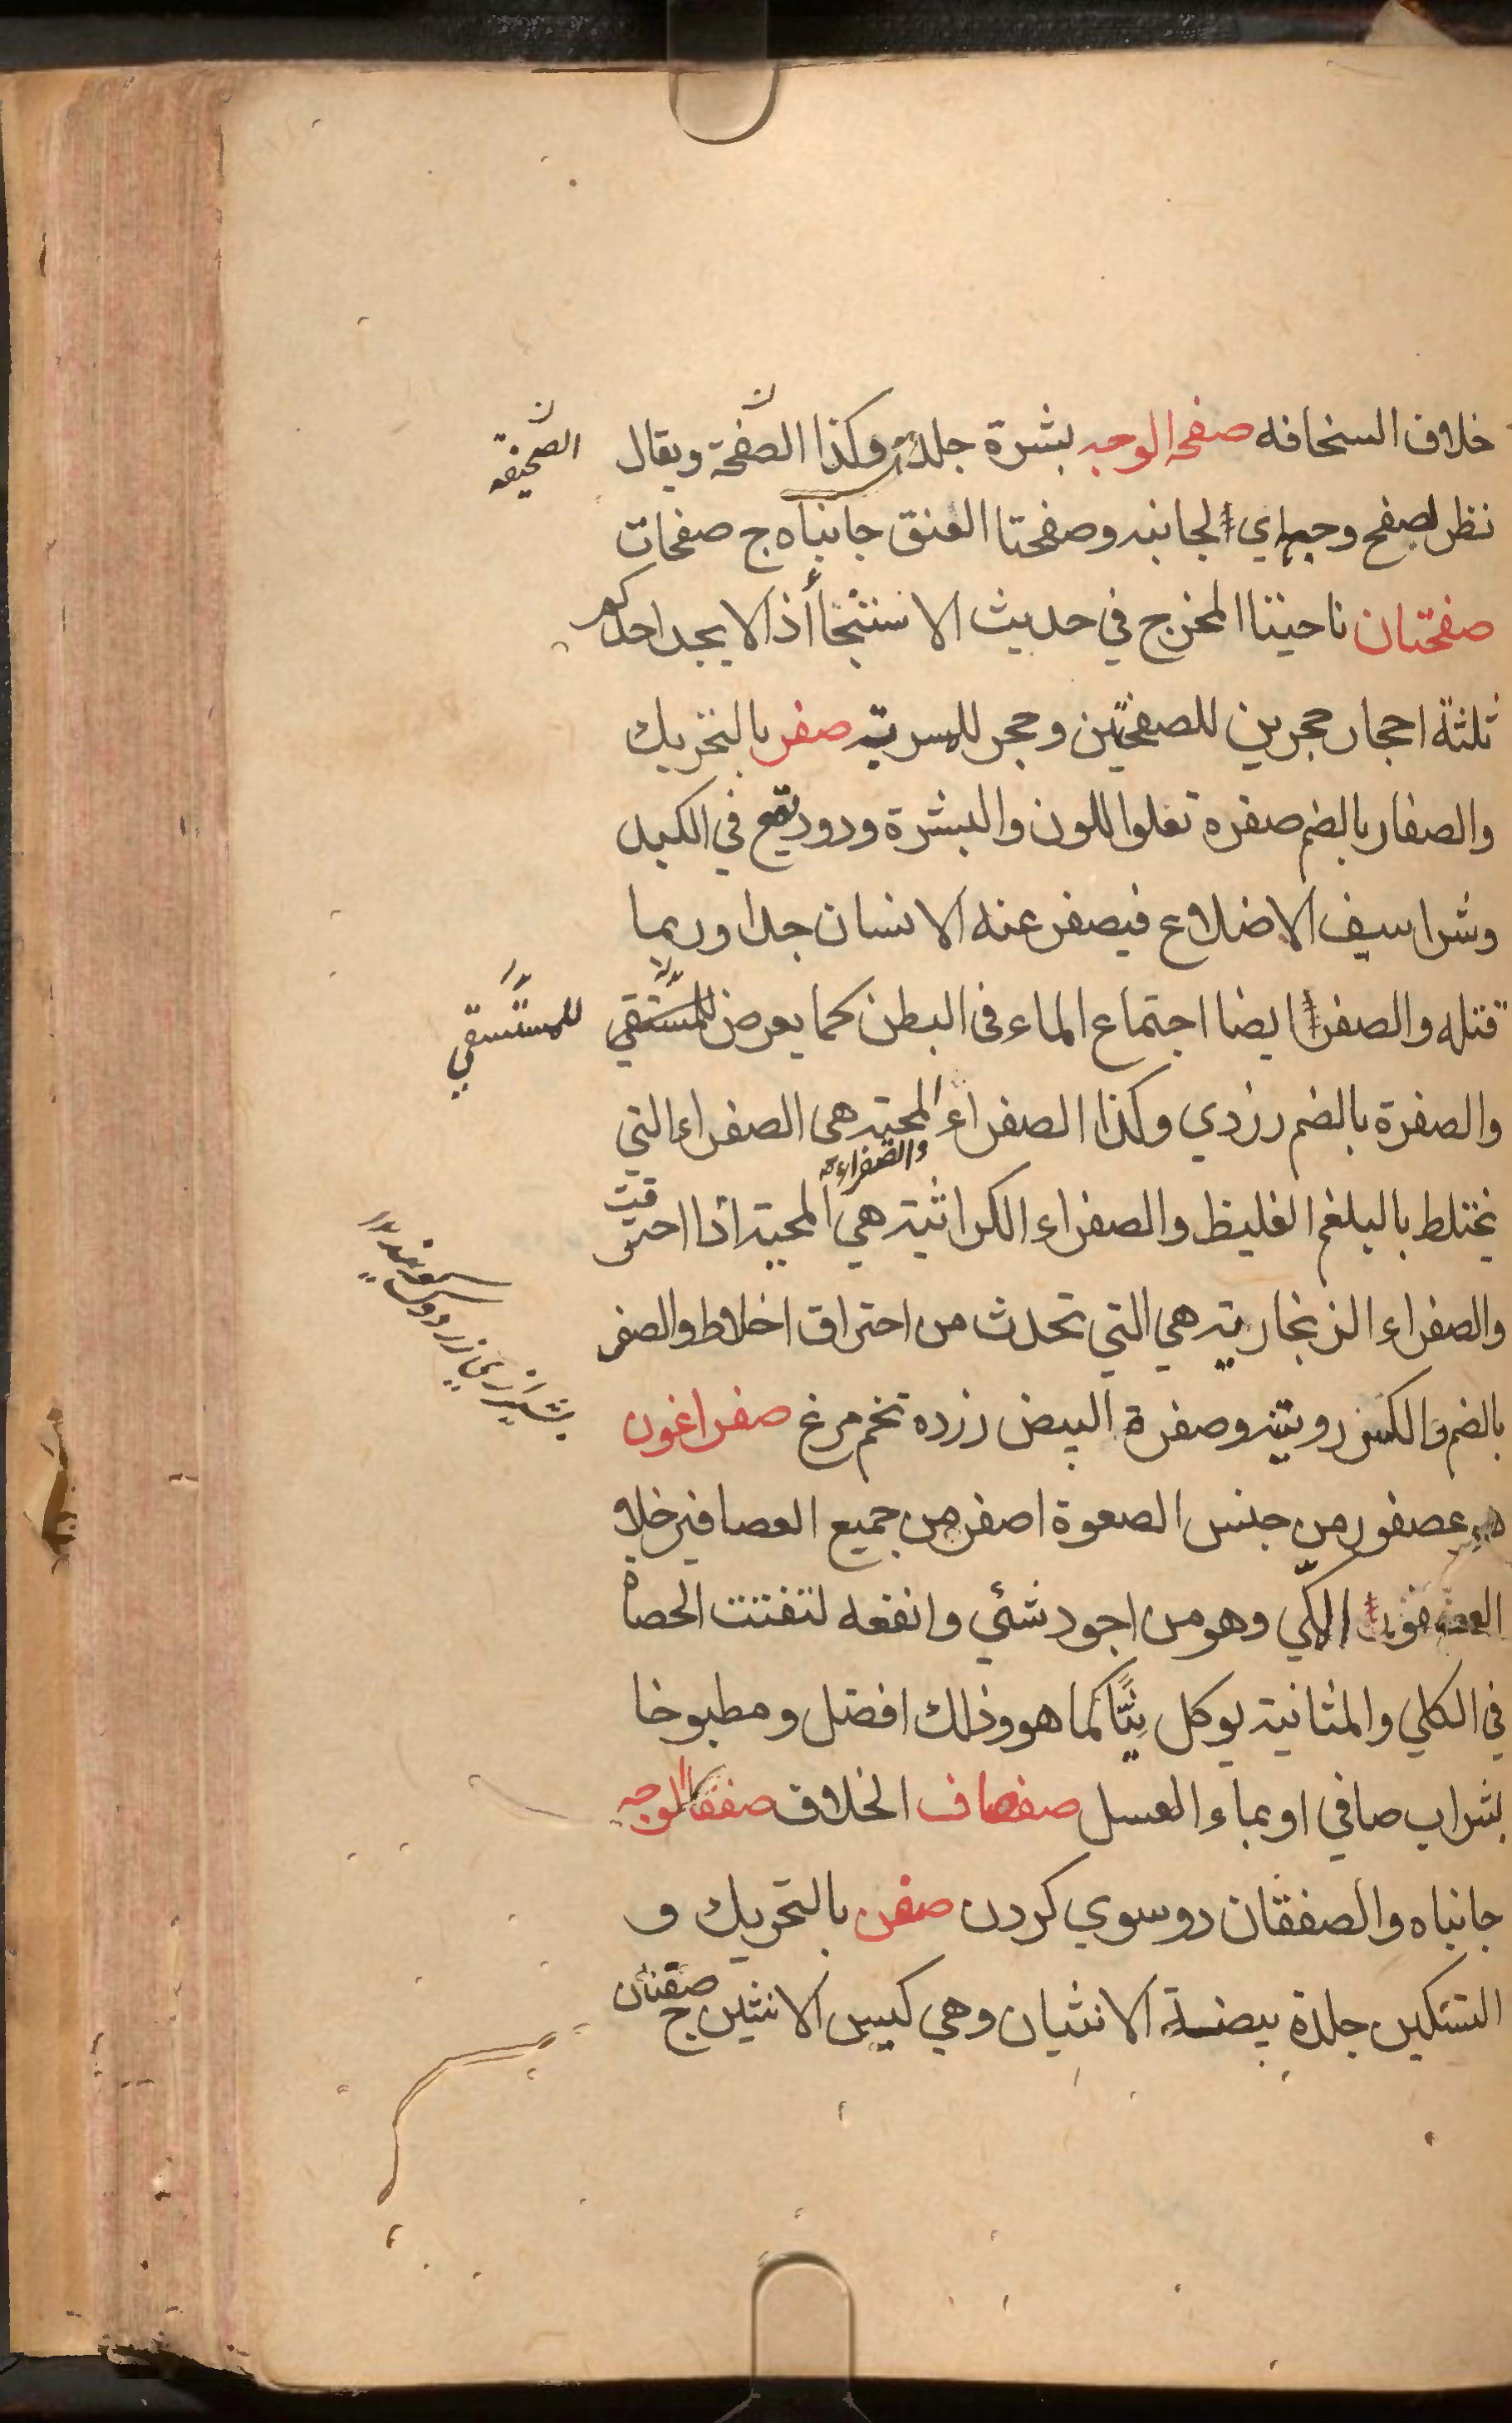 خلاف السخافه صفحه الوجه بشرة جلده وكذا الصفحة ويقال
الصحيفه
نظر لصفح وجهه اي لجانبه وصفحتا العنق جانباه ج صفحات
صفحتان ناحيتا المخرج في حديث الاستنجا أذا لا يجد احدكم
ثلثة احجار حجرين للصفحتين وحجر للمسربة صفر بالتحريك
والصفار بالضم صفرة تعلوا اللون والبشرة ودود تقع في الكبد
وشراسيف الاضلاع فيصفر عنه الانسان جدا وربما
قتله والصفر ايضا اجتماع الماء فى البطن كما يعرض للمستقي
للمستسقي
والصفرة بالضم زردي وكذا الصفراء المحيه هى الصفراء التي
والصفراء
يختلط بالبلغم الغليظ والصفراء الكراثية هي المحية اذا احترقت
والصفراء الزنجارية هي التي تحدث من احتراق اخلاط والصفر
بالضم والكسر روبين وصفرة البيض زرده تخم مرغ صفراغون
هو عصفور من جنس الصعوة اصفر من جميع العصافير خلا
العصفور الملكي وهو من اجود شئي وانفعه لتفتت الحصاة
في الكلي والمثانية يوكل نيًّا كما هو وذلك افضل ومطبوخا
بشراب صافي او بماء العسل صفصاف الخلاف صفقا الوجه
جانباه والصفقان دو سوي كردن صفن بالتحريك و
التسكين جلدة بيضة الانثيان وهي كيس الانثيين ج صفنان